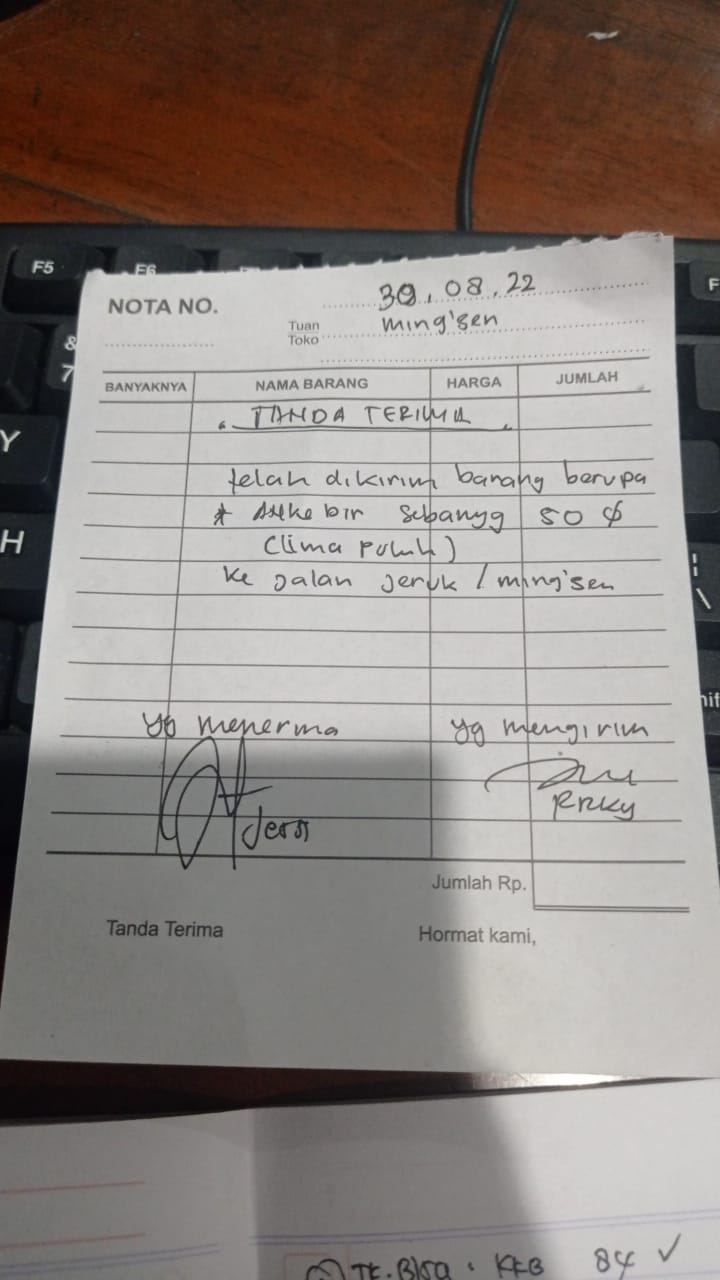 F5
F6
&
7
Y
H
NOTA NO.
30.08.22
Tuan
Toko
ming'sen
BANYAKNYA NAMA BARANG HARGA JUMLAH
TANDA TERIMA
telah dikirim barang berupa
* bir sebanyg 50
(Lima puluh)
ke Jalan Jeruk / ming'sen
yg menerma yg mengirim
Jess RRKY
Jumlah Rp.
Tanda Terima Hormat kami,
84 ✓